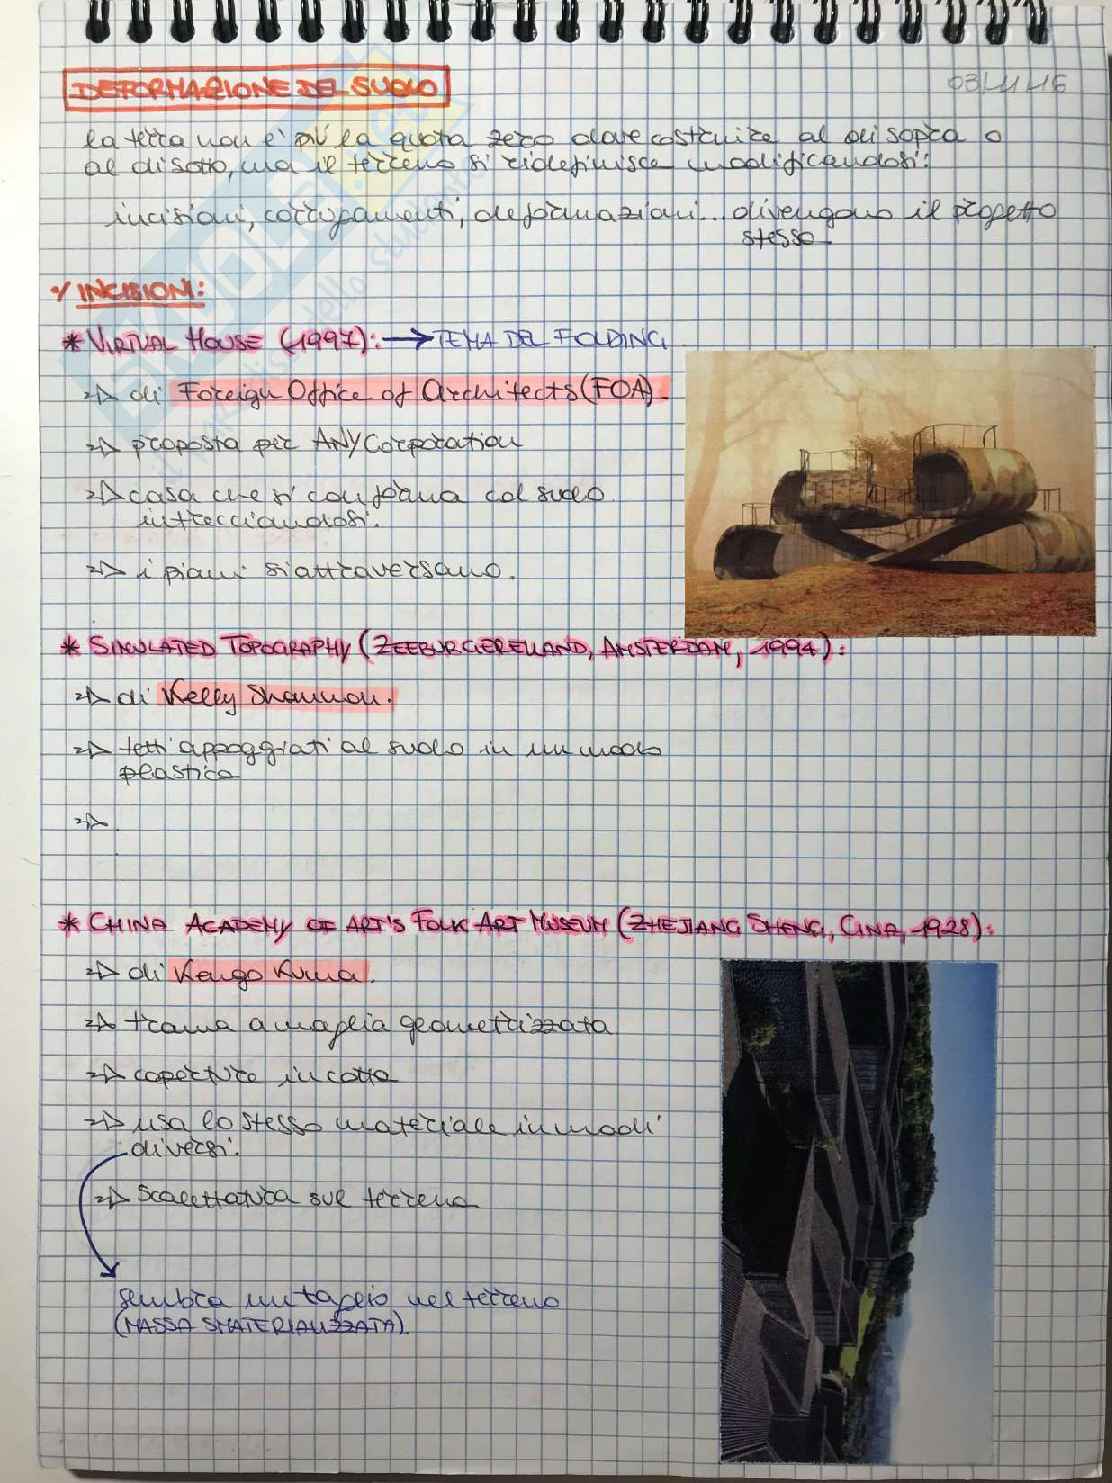 DEFORMAZIONE DEL SUOLO
03/11/16
la terra non è più la quota zero dove costruire al di sopra o
al di sotto, ma il terreno si ridefinisce modificandosi:
incisioni, corrugamenti, deformazioni... divengono il progetto
stesso.
INCISIONI:
* VIRTUAL HOUSE (1997): → TEMA DEL FOLDING
di Foreign Office of Architects (FOA).
proposta per ANY Corporation
casa che si conforma col suolo
intrecciandosi.
i piani si attraversano.
* SIMULATED TOPOGRAPHY (ZEEBURGEREILAND, AMSTERDAM, 1994):
di Kelly Shannon.
tetti appoggiati al suolo in un modo
plastico
* CHINA ACADEMY OF ART'S FOLK ART MUSEUM (ZHEJIANG SHENG, CINA, 1928):
di Kengo Kuma.
trama a maglia geometrizzata
coperture in cotto
usa lo stesso materiale in modi
diversi.
scalettatura sul terreno
sembra un taglio nel terreno
(MASSA SMATERIALIZZATA).